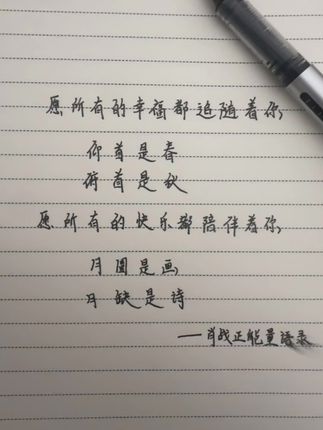 愿所有的幸福都追随着你,
仰首是春
俯首是秋
愿所有的快乐都陪伴着你,
月圆是画,
月缺是诗
——肖战正能量语录